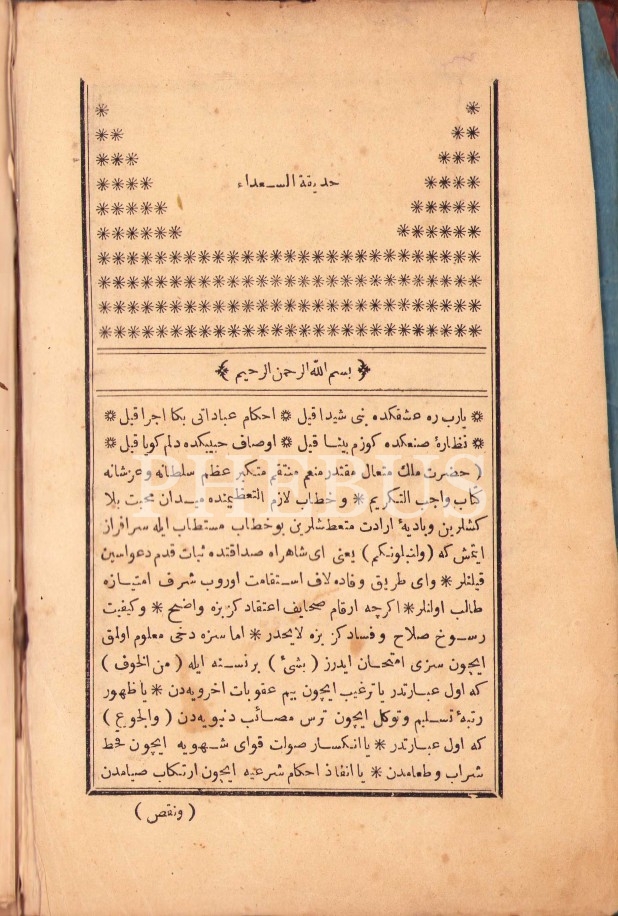 حديقة السعداء
بسم الله الرحمن الرحيم
يارب ره عشقكده بنى شيدا قيل * احكام عباداتى بكا اجرا قيل
نظارهٔ صنعكده كوزم بينا قيل * اوصاف حبيبكده دلم كويا قيل
( حضرت ملك متعال مقتدر منعم منتقم متكبر عظم سلطانه وعز شانه
كتاب واجب التكريم * وخطاب لازم التعظيمنده ميدان محبت بلا
كشلرين وباديهٔ ارادت متعطشلرين بو خطاب مستطاب ايله سرافراز
ايتمش كه ( ولنبلونكم ) يعنى اى شاهراه صداقتده ثبات قدم دعواسين
قيلنلر * واى طريق وفاده لاف استقامت اوروب شرف امتيازه
طالب اولنلر * اكرچه ارقام صحايف اعتقادكز بزه واضح * وكيفيت
رسوخ صلاح وفسادكز بزه لايحدر * اما سزه دخى معلوم اولمق
ايچون سزى امتحان ايدرز ( بشئ ) بر نسنه ايله ( من الخوف )
كه اول عبارتدر يا ترغيب ايچون بيم عقوبات اخرويه‌دن * يا ظهور
رتبهٔ تسليم وتوكل ايچون ترس مصائب دنيويه‌دن ( والجوع )
كه اول عبارتدر * يا انكسار صوات قواى شهويه ايچون قحط
شراب وطعامدن * يا انفاذ احكام شرعيه ايچون ارتكاب صيامدن
( ونقص )
PHEBUS